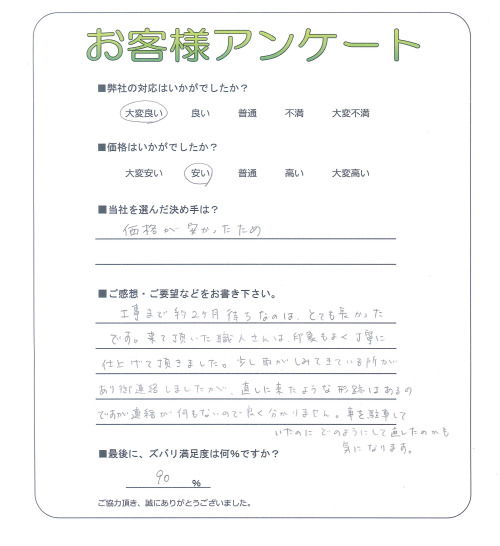 お客様アンケート
■弊社の対応はいかがでしたか？
大変良い 良い 普通 不満 大変不満
■価格はいかがでしたか？
大変安い 安い 普通 高い 大変高い
■当社を選んだ決め手は？
価格が安かったため
■ご感想・ご要望などをお書き下さい。
工事まで約2ヶ月待ちなのは、とても長かった
です。来て頂いた職人さんは、印象もよく丁寧に
仕上げて頂きました。少し雨がしみてきている所が
あり御連絡しましたが、直しに来たような形跡はあるの
ですが連絡が何もないので良く分かりません。車を駐車して
いたのに どのようにして直したのかも
気になります。
■最後に、ズバリ満足度は何%ですか？
90 %
ご協力頂き、誠にありがとうございました。